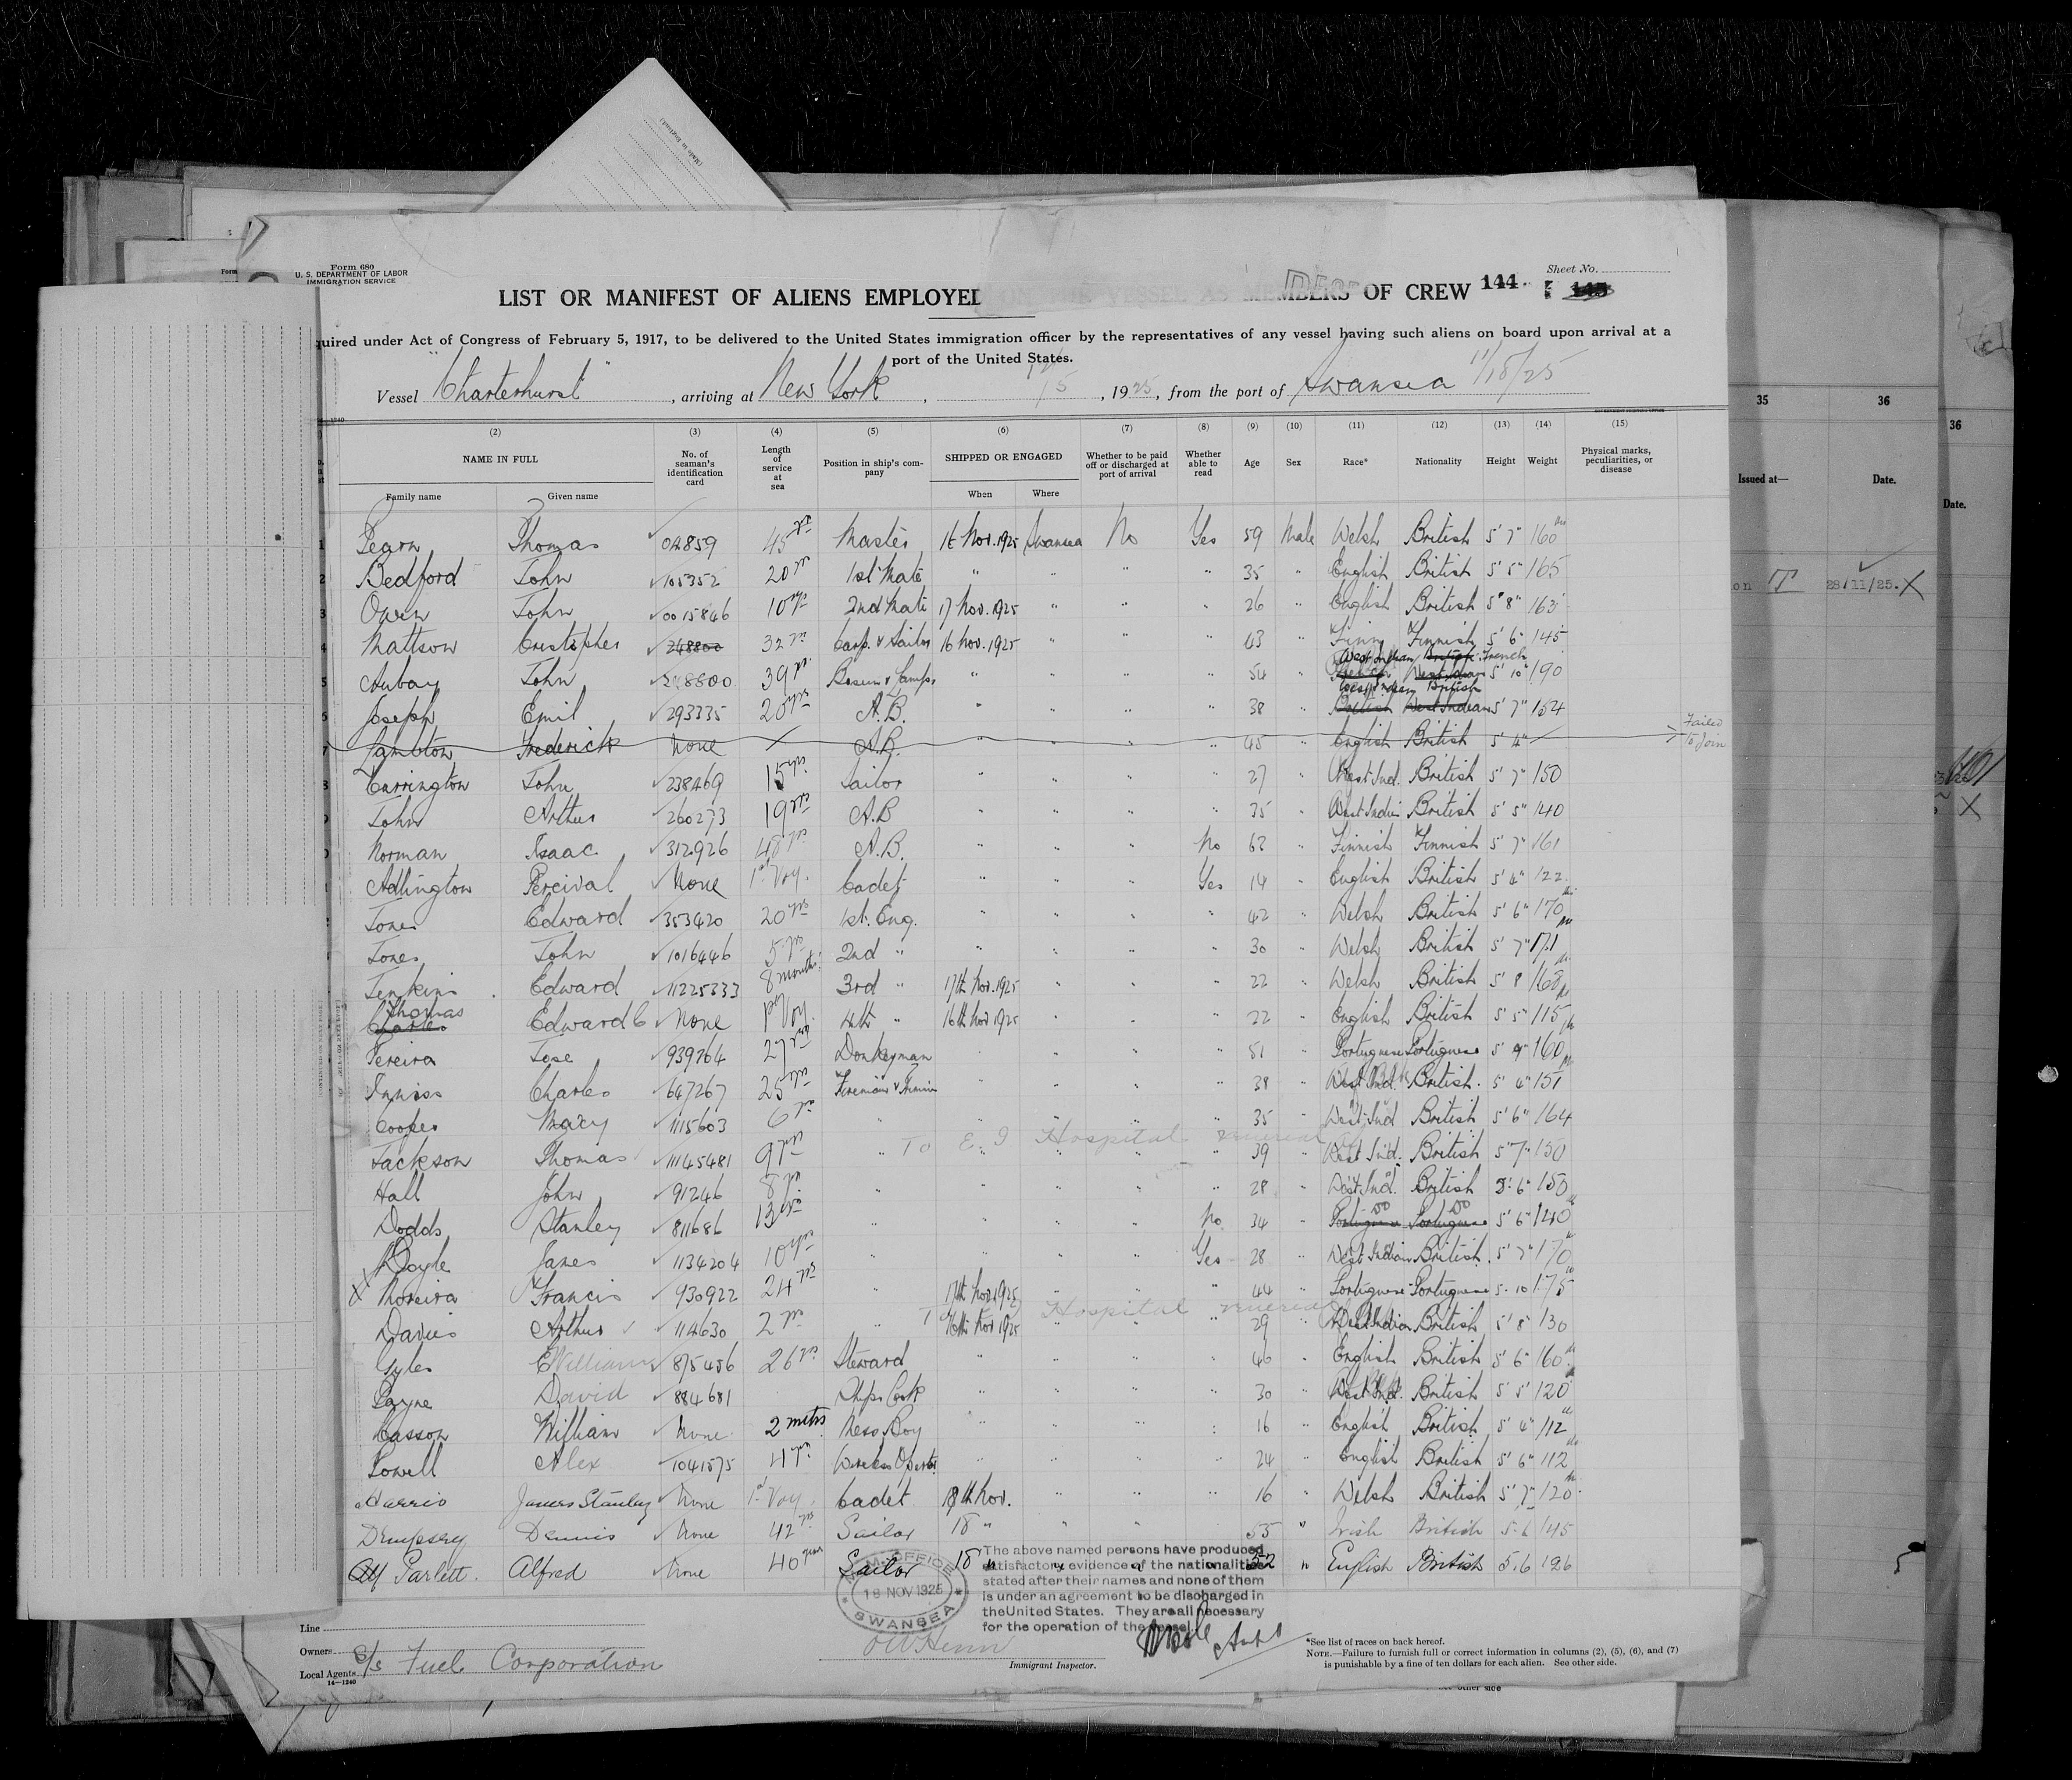 Form 680
U. S. DEPARTMENT OF LABOR
IMMIGRATION SERVICE
Form
(Made in England)
Sheet No.
LIST OR MANIFEST OF ALIENS EMPLOYED ON THE VESSEL AS MEMBERS OF CREW 144 145
quired under Act of Congress of February 5, 1917, to be delivered to the United States immigration officer by the representatives of any vessel having such aliens on board upon arrival at a
port of the United States.
Vessel "Charterhurst", arriving at New York, 1925, from the port of Swansea 11/18/25
(2) (3) (4) (5) (6) (7) (8) (9) (10) (11) (12) (13) (14) (15)
NAME IN FULL No. of seaman's identification card Length of service at sea Position in ship's company SHIPPED OR ENGAGED Whether to be paid off or discharged at port of arrival Whether able to read Age Sex Race* Nationality Height Weight Physical marks, peculiarities, or disease
Family name Given name When Where
35 36 36
Issued at— Date. Date.
1 Pearn Thomas 04859 45 yrs Master 16 Nov. 1925 Swansea No Yes 59 Male Welsh British 5' 7" 160
2 Bedford John 105352 20 yrs 1st Mate " " " " 35 " English British 5' 5" 165
3 Owen John 0015846 10 yrs 2nd Mate 17 Nov. 1925 " " " 26 " English British 5' 8" 163
28/11/25. X
4 Mattson Cristopher 248800 32 yrs Carp. & Sailor 16 Nov. 1925 " " " 43 " Finn Finnish 5' 6" 145
West Indian British French
5 Aubay John 248800 39 yrs Bosun & Lamps " " " " 54 " 5' 10" 190
West Indian British
6 Joseph Emil 293335 20 yrs A.B. " " " " 38 " British West Indian 5' 7" 154
7 Lambton Frederick None A.B. " " " " 45 " English British 5' 4" Failed to Join
8 Carrington John 238469 15 yrs Sailor " " " " 27 " West Ind. British 5' 7" 150
John Arthur 260273 19 yrs A.B " " " " 35 " West Indies British 5' 5" 140
Norman Isaac 312926 48 yrs A.B. " " " No 62 " Finnish Finnish 5' 7" 161
Adlington Percival None 1st Voy. Cadet " " " Yes 14 " English British 5' 4" 122
Jones Edward 353420 20 yrs 1st. Eng. " " " " 42 " Welsh British 5' 6" 170
Jones John 1016446 5 yrs 2nd " " " " " 30 " Welsh British 5' 7" 171
Jenkins Edward 11225333 8 months 3rd " 17th Nov. 1925 " " " 22 " Welsh British 5' 8 168
Thomas
Charles Edward C None 1st Voy. 4th " 16th Nov 1925 " " " 22 " English British 5' 5" 115
Pereira Jose 939264 27 yrs Donkeyman " " " " 51 " Portuguese Portuguese 5' 9" 160
Inniss Charles 647267 25 yrs Fireman & Trimmer " " " " 38 " West Ind. British. 5' 4" 151
Cooper Mary 1115603 6 yrs " " " " " 35 " West Ind British 5' 6" 164
To E. I Hospital
Jackson Thomas 11145481 9 yrs " " " " " 39 " West Ind. British 5' 7" 150
Hall John 91246 8 yrs " " " " " 28 " West. Ind. British 5' 6" 150
Dodds Stanley 811686 13 yrs " " " " No 34 " Portuguese Portuguese 5' 6" 140
Doyle James 1134204 10 yrs " " " " Yes 28 " West Indian British. 5' 7" 170
X Moreira Francis 930922 24 yrs " 17th Nov 1925 " " " 44 " Portuguese Portuguese 5. 10 175
Hospital
Davies Arthur 114630 2 yrs " 16th Nov 1925 " " " 29 " West Indian British 5' 8" 130
Gyles E William 875456 26 yrs Steward " " " " 46 " English British 5' 6" 160
Payne David 884681 Ships Cook " " " " 30 " West Ind. British 5' 5' 120
Casson William None 2 mths Mess Boy " " " 16 " English British 5' 4" 112
Lowell Alex 1041575 4 yrs Wireless Operator " " " " 24 " English British 5' 6" 112
Harris James Stanley None 1st Voy. Cadet 18th Nov. " " 16 " Welsh British 5' 7" 120
Dempsey Dennis None 42 yrs Sailor 18 " " " 55 " Irish British 5.6 145
Alf Parlett. Alfred None 40 years Sailor 18 " " " " 52 " English British 5.6 126
M.M. OFFICE
18 NOV 1925
SWANSEA
The above named persons have produced
satisfactory evidence of the nationalities
stated after their names and none of them
is under an agreement to be discharged in
the United States. They are all necessary
for the operation of the vessel.
Line
Owners
Local Agents S/s Fuel Corporation
14—1240
Immigrant Inspector.
*See list of races on back hereof.
NOTE.—Failure to furnish full or correct information in columns (2), (5), (6), and (7)
is punishable by a fine of ten dollars for each alien. See other side.